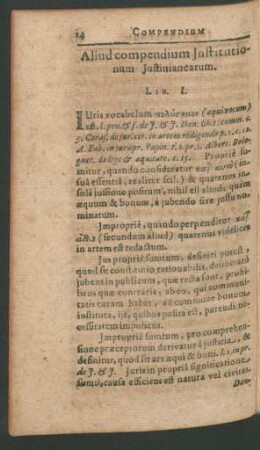 24 COMPENDIUM
Aliud compendium Justitutio-
num Justinianearum.
LIB. I.
IUris vocabulum (æquivocum)
est. l. pen. & f. de J. & J. Don. lib. 1. comm. c.
5. Coras. de jur. art. in artem redigendo p. 1. c. 12.
A. Fab. in jurispr. Papin. t. 1. pr. 1. Albert.
de lege & æquitate. c. 15. Propriè su-
mitur, quando consideratur (in
sua essentia, realiter scil.) & quatenus in
solâ jussione positum, nihil est aliud, quàm
æquum & bonum, à jubendo sive jussu no-
minatum.
Impropriè, quando perpenditur
(secundum aliud) quatenus videlicet
in artem est redactum.
Jus propriè sumtum, definiri potest
quod sit constitutio rationabilis,
jubens in publicum, quæ recta sunt
bens quæ contraria, abeo, qui communi-
tatis curam habet, ad commune bonum
instituta, ijs, quibus posita est, parendi ne-
cessitatem imponens.
Impropriè sumtum, pro comprehen-
sione præceptorum derivatur à justitia, &
definitur, quod sit ars æqui & boni. l. 1. in pr.
de J. & J. Juris in propriâ significatione
sumti, causa efficiens est natura vel civitas.
Don.